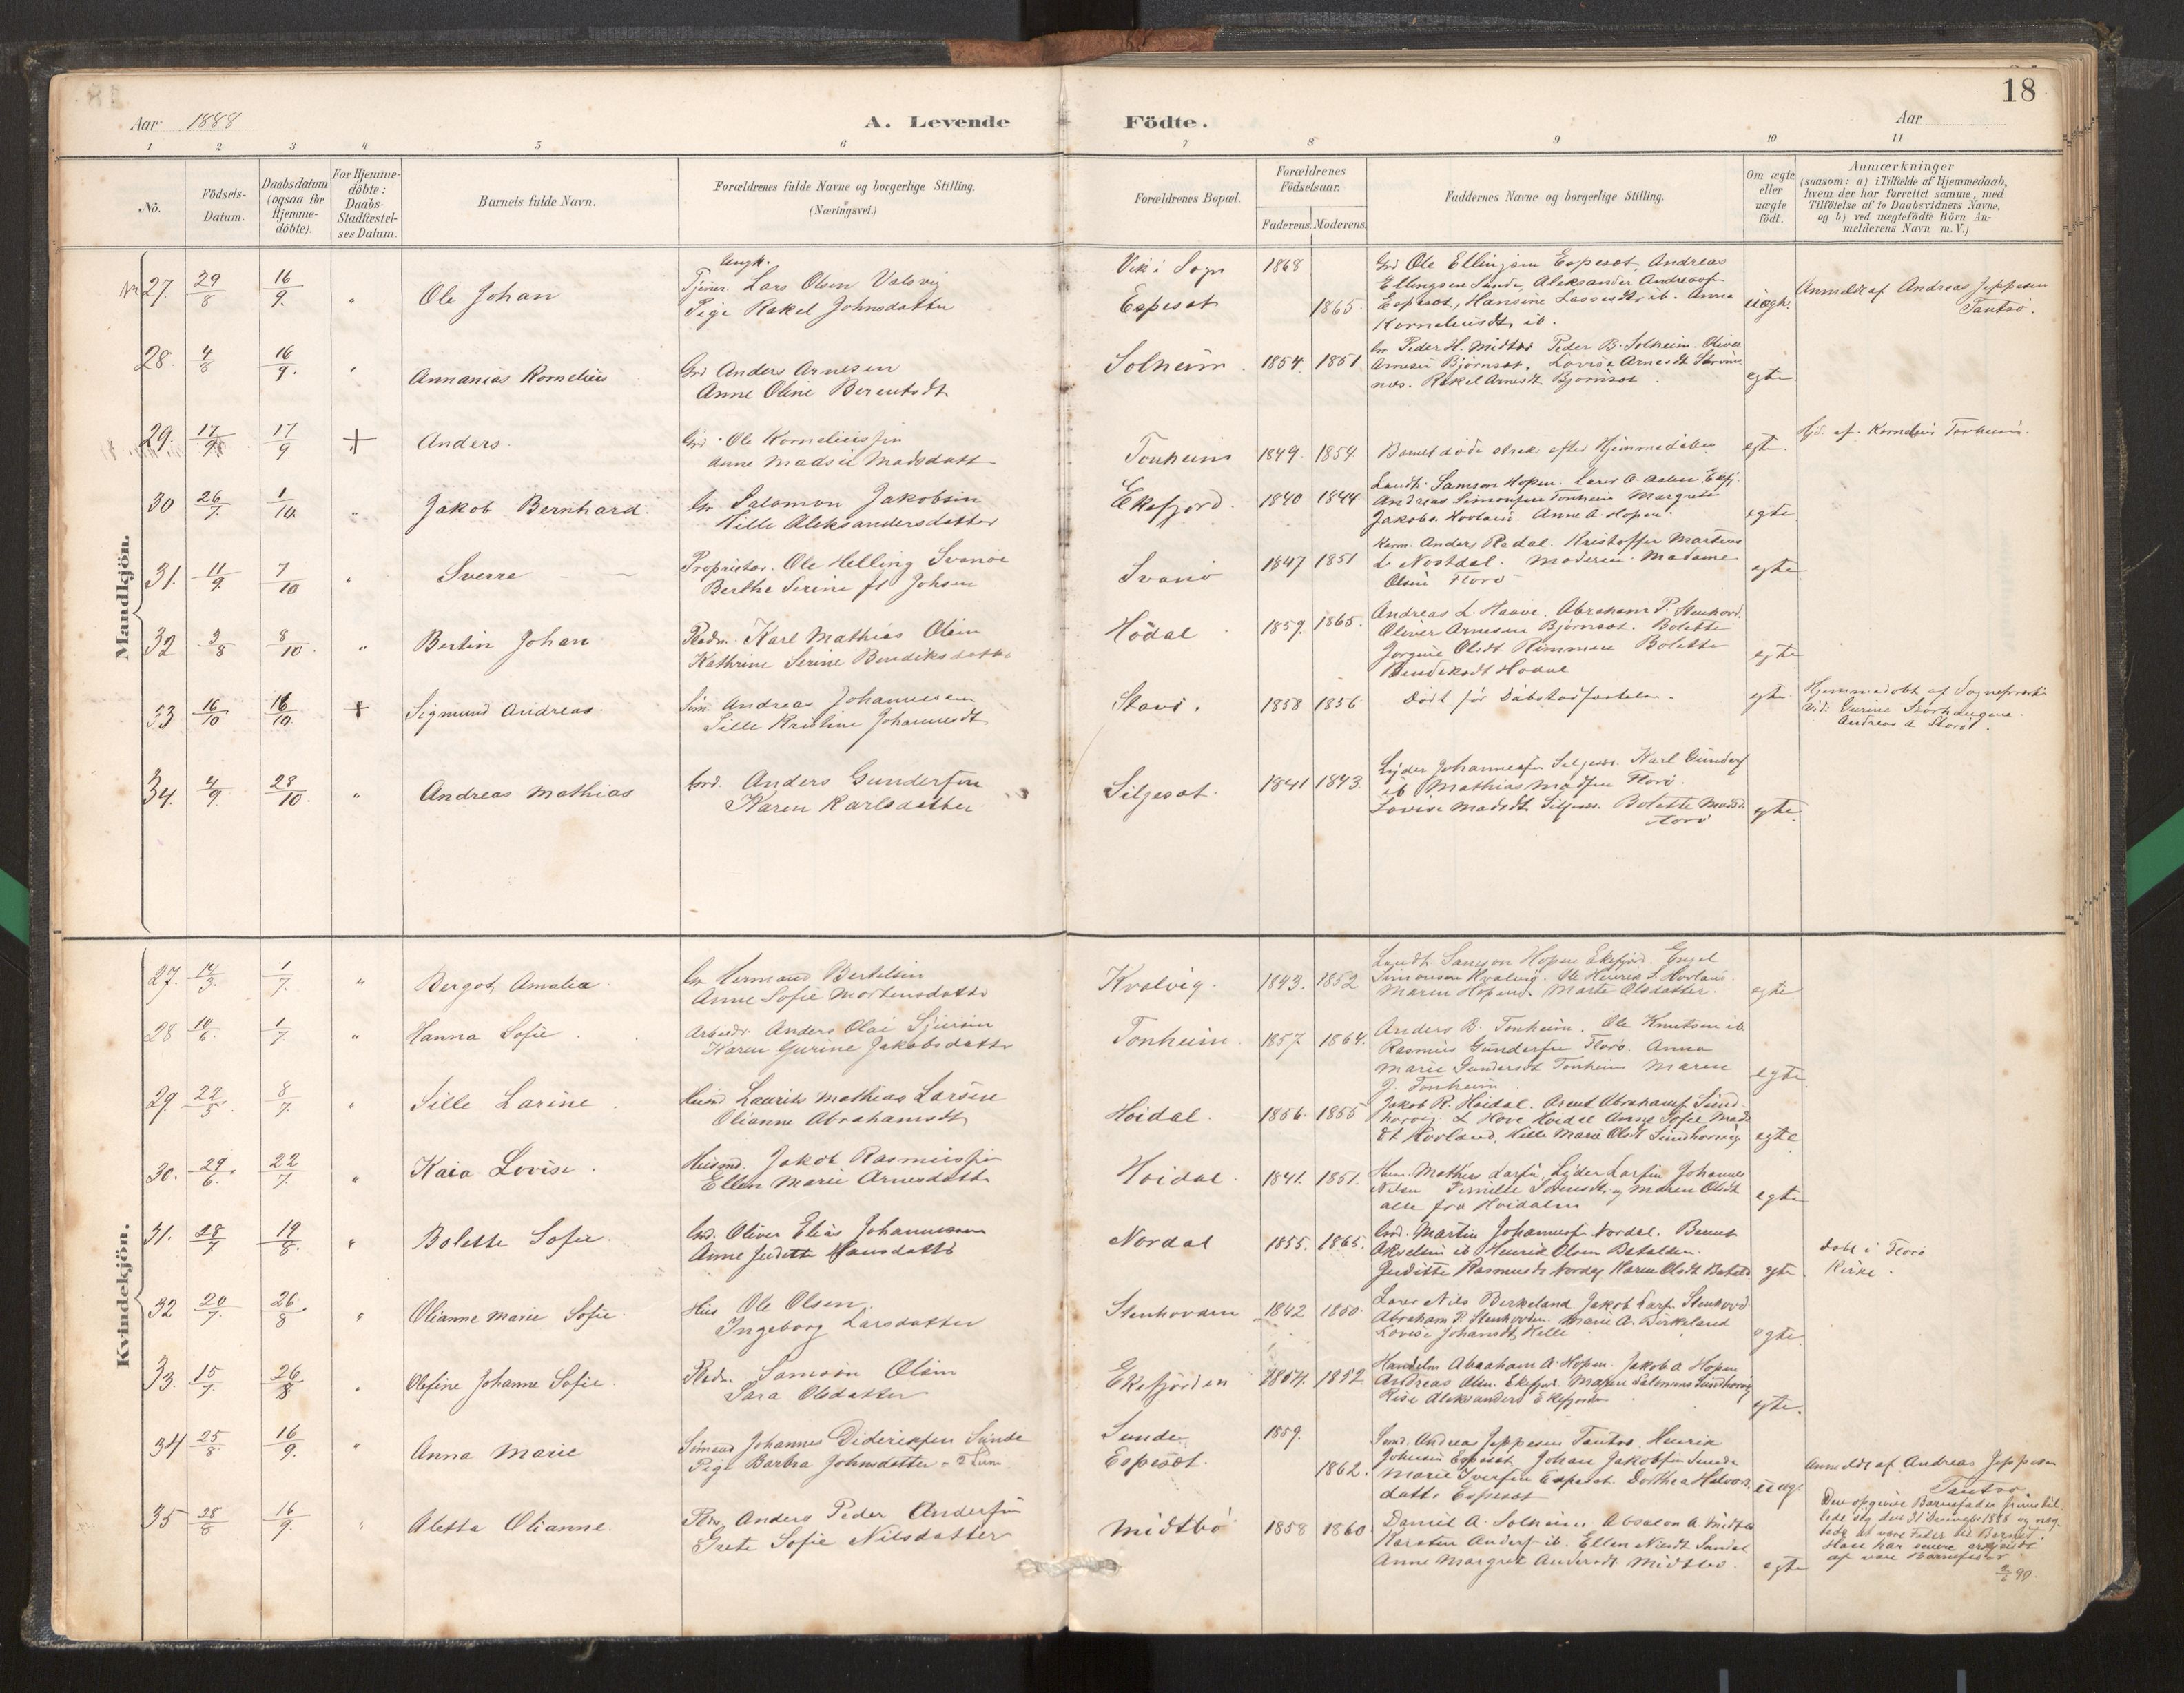 18
Aar 1888
A. Levende
Födte.
Aar
1 2 3 4 5 6 7 8 9 10 11
No.
Födsels-
Datum.
Daabsdatum
(ogsaa for
Hjemme-
döbte).
For Hjemme-
döbte:
Daabs-
Stadfæstel-
ses Datum.
Barnets fulde Navn.
Forældrenes fulde Navne og borgerlige Stilling.
(Næringsvei.)
Forældrenes Bopæl.
Forældrenes
Födselsaar.
Faderens. Moderens.
Faddernes Navne og borgerlige Stilling.
Om ægte
eller
uægte
födt.
Anmærkninger
(saasom: a) i Tilfælde af Hjemmedaab,
hvem der har forrettet samme, med
Tilföielse af to Daabsvidners Navne,
og b) ved uægtefödte Börn An-
melderens Navn m. V.)
Mandkjön.
27. 29/8 16/9 " Ole Johan
Ungk.
Tjener Lars Olsen Valsvig
Pige Rakel Johnsdatter
Vik i Sogn 1868
Espeset 1865
Grd Ole Ellingsen Espeset, Andreas
Ellingsen Sunde, Aleksander Andreasf
Espeset, Hansine Lassesdt, ib. Anna
Korneliusdt, ib.
uægte.
Anmeldt af Andreas Jeppesen
Tantsø.
28. 4/8 16/9 " Annanias Kornelius
Grd Anders Arnesen
Anne Oline Berentsdt
Solheim 1854 1851
Gr Peder H. Midtbø Peder B. Solheim. Oliver
Arnesen Bjørnset, Lovise Arnesdt
Rakel Arnesdt Bjørnset.
egte
29. 17/9 17/9 + Anders
Grd. Ole Korneliussen
Anne Madsil Madsdatt
Tonheim 1849 1854
Barnet døde strax efter Hjemmedåben
egte
Hjd. af Kornelius Tonheim.
30 26/7 1/10 " Jakob Bernhard
Gr Salomon Jakobsen
Sille Aleksandersdatter
Ekefjord. 1840 1844
Landh. Samson Hopen. Lars O. Aalen Ekfj.
Andreas Simonsen Tonheim Margrete
Jakobs. Hovland. Anne A. Hopen.
egte
31. 11/9 7/10 " Sverre
Proprietær. Ole Helling Svanøe
Berthe Serine f. Johsen
Svanø 1847 1851
Anders Redal. Kristoffer Martens
L. Nøstdal. Moderen. Madame
Olsen Florø
egte
32 3/8 8/10 " Bertin Johan
Karl Mathias Olsen
Kathrine Serine Bendiksdatter
Hødal 1859. 1865.
Andreas L. Hauve. Abraham P. Stenhovd.
Oliver Arnesen Bjørnset. Bolette
Jorgine Olsdt Rimmen Bolette
Bendiksdt Hødal
egte
33 16/10 16/10 + Sigmund Andreas
Andreas Johannesen
Sille Kristine Johannesdt
Stavø. 1858 1856
Død før Dåbstadfæstelse.
egte.
Hjemmedøbt af Sognepræsten
Vid: Gurine Storhaugene.
Andreas A Storø.
34. 4/9. 28/10. " Andreas Mathias
Grd. Anders Gundersen
Karen Karlsdatter
Siljeset. 1841 1843.
Lyder Johannesen Siljeset. Karl Gundersf
ib Mathias Madsen Florø.
Lovise Madsdt Siljeset. Bolette Madsd.
Florø
egte.
Kvindekjön.
27. 14/3. 1/7. " Bergot Amalia
Gr Hermand Bertelsen
Anne Sofie Mortensdatter
Kvalvig. 1843. 1852
Landh. Samson Hopen Ekefjord. Engel
Simonsen Kvalvig. Ole Henrik S. Hovland.
Maren Hopen. Marte Olsdatter.
egte
28 10/6 1/7. " Hanna Sofie
Arbeidr. Anders Olai Sjursen
Karen Gurine Jakobsdatter
Tonheim. 1857 1864.
Anders B. Tonheim. Ole Knutsen ib
Rasmus Gundersen Florø. Anna
Marie Gundersdt Tonheim Maren
J. Tonheim
egte
29. 22/5. 8/7. " Sille Larine
Husmd Laurits Mathias Larsen
Olianne Abrahamsdt
Høidal. 1856. 1855
Jakob R. Høidal. Arent Abrahamsf. Sund-
horvig. L Hove Høidal Anne Sofie Mads
dt Hovland, Helle Marie Olsdt Sundhorvig
egte
30. 29/6. 22/7. " Kaia Lovise.
Husmd. Jakob Rasmussen
Ellen Marie Arnesdatter
Høidal. 1841. 1851.
Hus. Mathias Larsen, Lyder Larsen Johannes
Nilsen Pernille Sørensdt, og Maren Olsdt
alle fra Høidalen
egte
31. 28/7 19/8. " Bolette Sofie.
Grd. Oliver Elias Johannesen
Anne Juditte Hansdatter
Nordal 1855. 1865.
Grd. Martin Johannesf Nordal. Bernt
Akselsen ib Henrik Olsen Batalden.
Juditte Rasmusdt Nordal Karen Olsdt Batald
egte
Døbt i Florø
Kirke.
32 20/7. 26/8. " Olianne Marie Sofie.
Hus Ole Olsen
Ingeborg Larsdatter
Stenhovden 1842 1850.
Lars Nils Birkeland Jakob Larsen Stenhovd
Abraham P. Stenhovden Marie A. Birkeland
Lovise Johansdt, Helle
egte
33. 15/7. 26/8 " Olefine Johanne Sofie.
Samson Olsen
Sara Olsdatter
Ekefjorden 1854. 1852
Handelm Abraham A. Hopen. Jakob A Hopen
Andreas Olsen. Ekefjord. Maren Salomons Sundhorvig
Rise Aleksanders Ekefjorden
egte.
34 25/8 16/9. " Anna Marie
Johannes Dideriksen Sunde
Pige Barbra Johnsdatter
Sunde 1859.
Espeset. 1862.
Andreas Jeppesen Tantsø. Henrik
Johnsen Espeset Johan Jakobsen Sunde
Marie Iversen Espeset. Dorthea Halvors
datter Espeset
uægt
Anmeldt af Andreas Jeppesen
Tantsø
Den opgivne Barnefader
lede sig den 31 December 1888 og nog-
tede at være Fader til Barnet.
Han har senere erkjendt
at være Barnefader
90.
35 28/8 16/9. " Aletta Olianne.
Anders Peder Andersen
Grete Sofie Nilsdatter
Midtbø 1858 1860
Daniel A. Solheim Absalon A. Midtbø
Karsten Andersf ib. Ellen Nilsdt Sundal
Anne Margret Andersdt Midtbø.
egte